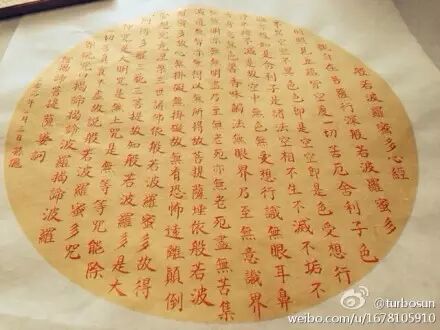 般若波羅蜜多心經
觀自在菩薩行深般若波羅蜜多
時照見五蘊皆空度一切苦厄舍利子色
不異空空不異色色即是空空即是色受想行
識亦復如是舍利子是諸法空相不生不滅不垢不
淨不增不減是故空中無色無受想行識無眼耳鼻
舌身意無色聲香味觸法無眼界乃至無意識界
無無明亦無無明盡乃至無老死亦無老死盡無苦集
滅道無智亦無得以無所得故菩提薩埵依般若波
羅蜜多故心無掛礙無掛礙故無有恐怖遠離顛倒
夢想究竟涅槃三世諸佛依般若波羅蜜多故得
阿耨多羅三藐三菩提故知般若波羅蜜多是大
神咒是大明咒是無上咒是無等等咒能除
一切苦真實不虛故說般若波羅蜜多咒
即說咒曰揭諦揭諦波羅揭諦波羅
僧揭諦菩提薩婆訶
@turbosun
weibo.com/u/1678105910